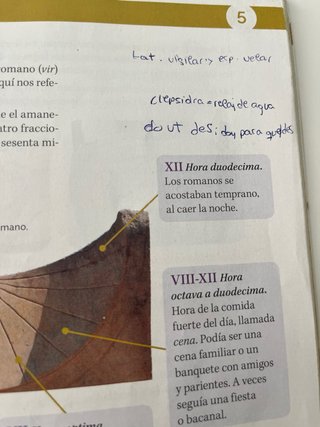 5
Lat. vigilar > esp. velar
omano (vir)
quí nos refe-
clepsidra = reloj de agua
e el amane-
atro fraccio-
do ut des; doy para que des
sesenta mi-
XII Hora duodecima.
Los romanos se
acostaban temprano,
al caer la noche.
mano.
VIII-XII Hora
octava a duodecima.
Hora de la comida
fuerte del día, llamada
cena. Podía ser una
cena familiar o un
banquete con amigos
y parientes. A veces
seguía una fiesta
o bacanal.